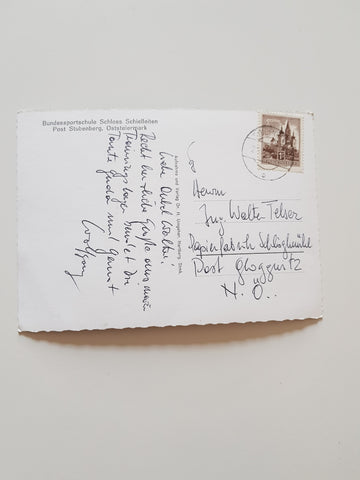 Bundessportschule Schloss Schielleiten
Post Stubenberg, Oststeiermark
Lieber Onkel Walter!
Recht herzliche Grüße aus meinem
Trainingslager sendet Dir
Tante Gerda und
Wolfgang
Aufnahme und Verlag Dr. H. Hartberg, Stmk.
Herrn
Ing. Walter Telser
Papierfabrik Schlöglmühle
Post Gloggnitz
N.Ö.